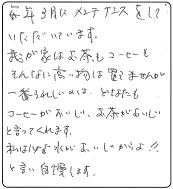 毎年3月にメンテナンスをして
いただいています。
我が家はお茶もコーヒーも
そんなに高い物は買えませんが
一番うれしいのは、どなたも
コーヒーがおいしい、お茶がおいしい
と言ってくれます。
私はいいえ水がおいしいからよ!!
と言い自慢します。